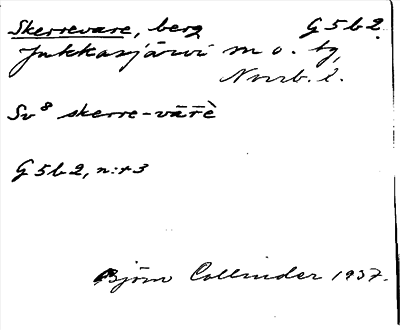 Skerrevare, berg G 5 b 2
Jukkasjärvi m o. tg,
Norrb. l.
Sv⁸ skerre-vārè
G 5 b 2, n:r 3
Björn Collinder 1937.